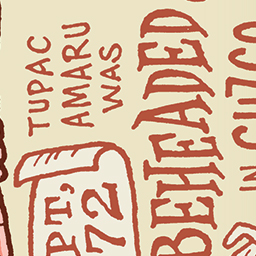 TUPAC
AMARU
WAS
BEHEADED
IN CUZCO
PT,
72